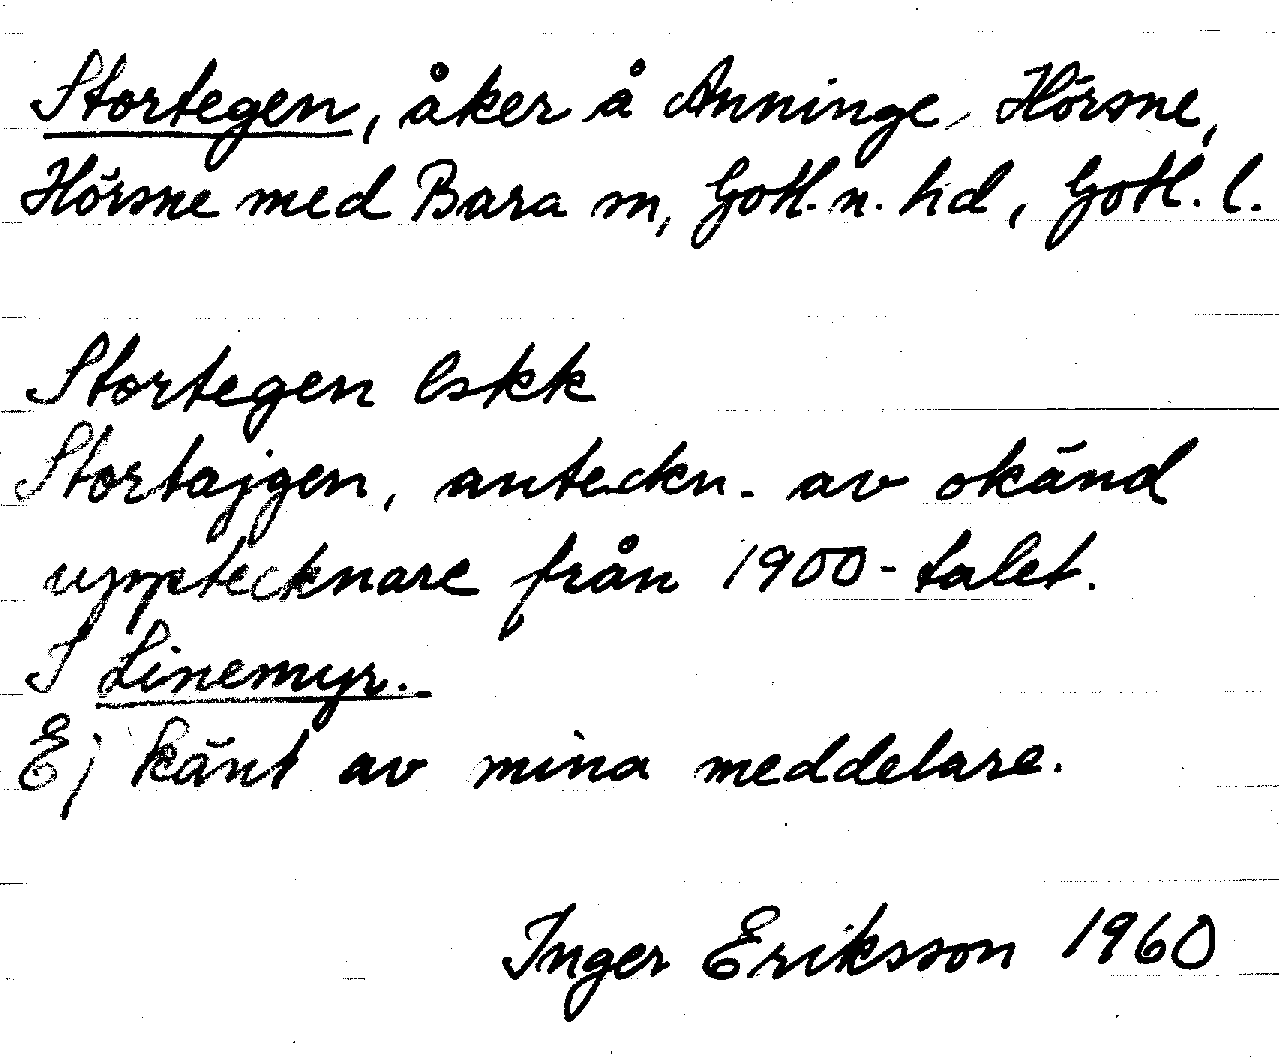 Stortegen, åker å Anninge, Hörsne,
Hörsne med Bara sn, Gotl. n. hd, Gotl. l.
Stortegen lskk
Stortajgen, anteckn. av okänd
upptecknare från 1900-talet.
I Linemyr.
Ej känt av mina meddelare.
Inger Eriksson 1960